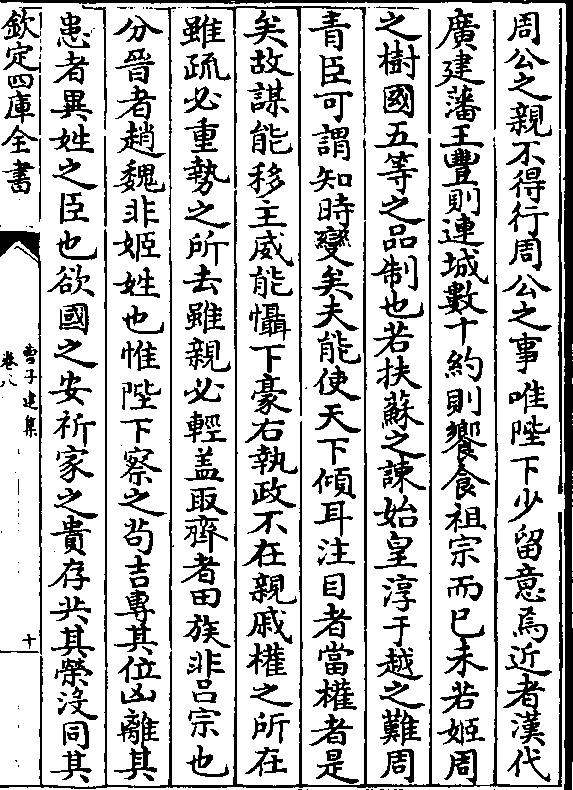 周公之親不得行周公之事唯陛下少留意焉近者漢代
廣建藩王豐則連城數十約則饗食祖宗而已未若姬周
之樹國五等之品制也若扶蘇之諫始皇淳于越之難周
青臣可謂知時變矣夫能使天下傾耳注目者當權者是
矣故謀能移主威能懾下豪右執政不在親戚權之所在
雖疏必重勢之所去雖親必輕盖取齊者田族非吕宗也
分晉者趙魏非姬姓也惟陛下察之茍吉專其位凶離其
患者異姓之臣也欲國之安祈家之貴存共其榮没同其
欽定四庫全書
曹子建集
卷八
十